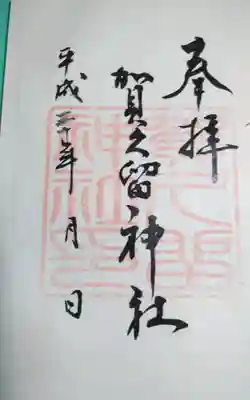 奉拝
加賀久留神社
平成三十年 月 日